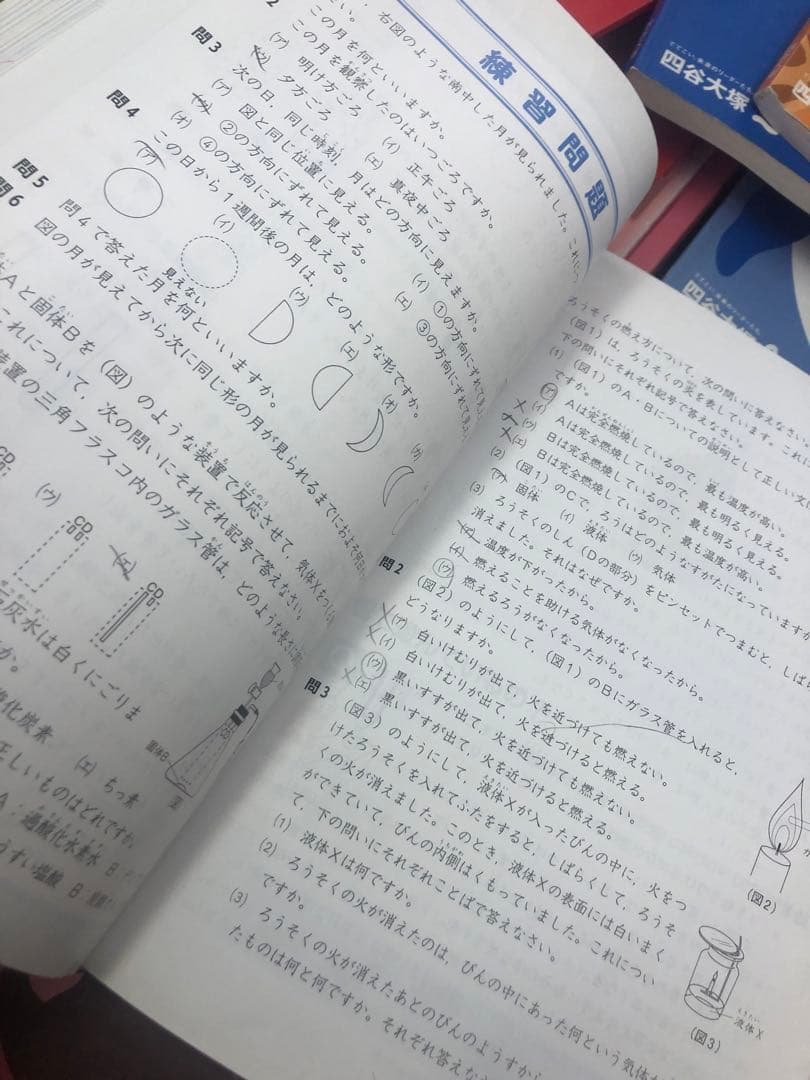 練習問題
右図のような南中した月が見られました。これに
い。
この月を何といいますか。
この月を観察したのはいつごろですか。
(ア) 明け方ごろ (イ) 正午ごろ
夕方ごろ (エ) 真夜中ごろ
問3 次の日,同じ時刻,月はどの方向に見えますか。
(ア) 図と同じ位置に見える。 (イ) ①の方向にずれて見
②の方向にずれて見える。 (エ) ③の方向にずれて見
(オ) ④の方向にずれて見える。
問4 この日から1週間後の月は,どのような形ですか。
(ア) (イ) (ウ) (エ) (オ)
見えない
問5 問4で答えた月を何といいますか。
問6 図の月が見えてから次に同じ形の月が見られるまでにおよそ何日
Aと固体Bを(図)のような装置で反応させて,気体Xをつく
これについて,次の問いにそれぞれ記号で答えなさい。
装置の三角フラスコ内のガラス管は,どのような長さに
(ウ) (エ)
CD
CD
灰水は白くにごりま
か。
化炭素 (エ) ちっ素
正しいものはどれですか。
A:過酸化水素水 B
うすい塩酸 B
固体B
ろうそくの燃え方について,次の問いに答えなさい
(図1)は,ろうそくの炎を表しています。これに
下の問いにそれぞれ記号で答えなさい。
(1) (図1)のA・Bについての説明として正しい文
ですか。
(ア) Aは完全燃焼しているので,最も温度が高い。
(イ) Aは完全燃焼しているので,最も明るく見える。
(ウ) Bは完全燃焼しているので,最も明るく見える。
(エ) Bは完全燃焼しているので,最も温度が高い。
(2) (図1)のCで,ろうはどのようなすがたになっていますか
(ア) 固体 (イ) 液体 (ウ) 気体
(3) ろうそくのしん(Dの部分)をピンセットでつまむと,しばら
消えました。それはなぜですか。
(ア) 温度が下がったから。
(イ) 燃えることを助ける気体がなくなったから。
(ウ) 燃えるろうがなくなったから。
問2 (図2)のようにして,(図1)のBにガラス管を入れると,
どうなりますか。
(ア) 白いけむりが出て,火を近づけても燃えない。
(イ) 白いけむりが出て,火を近づけると燃える。
(ウ) 黒いすすが出て,火を近づけても燃えない。
(エ) 黒いすすが出て,火を近づけると燃える。
問3 (図3)のようにして,液体Xが入ったびんの中に,火をつ
けたろうそくを入れてふたをすると,しばらくして,ろうそ
くの火が消えました。このとき,液体Xの表面には白いまく
ができていて,びんの内側はくもっていました。これについ
て,下の問いにそれぞれことばで答えなさい。
(1) 液体Xは何ですか。
(2) ろうそくの火が消えたのは,びんの中にあった何という気体が
ですか。
(3) ろうそくの火が消えたあとのびんのようすから
たものは何と何ですか。それぞれ答えな
(図2)
液体X
(図3)
四谷大塚
四谷大塚